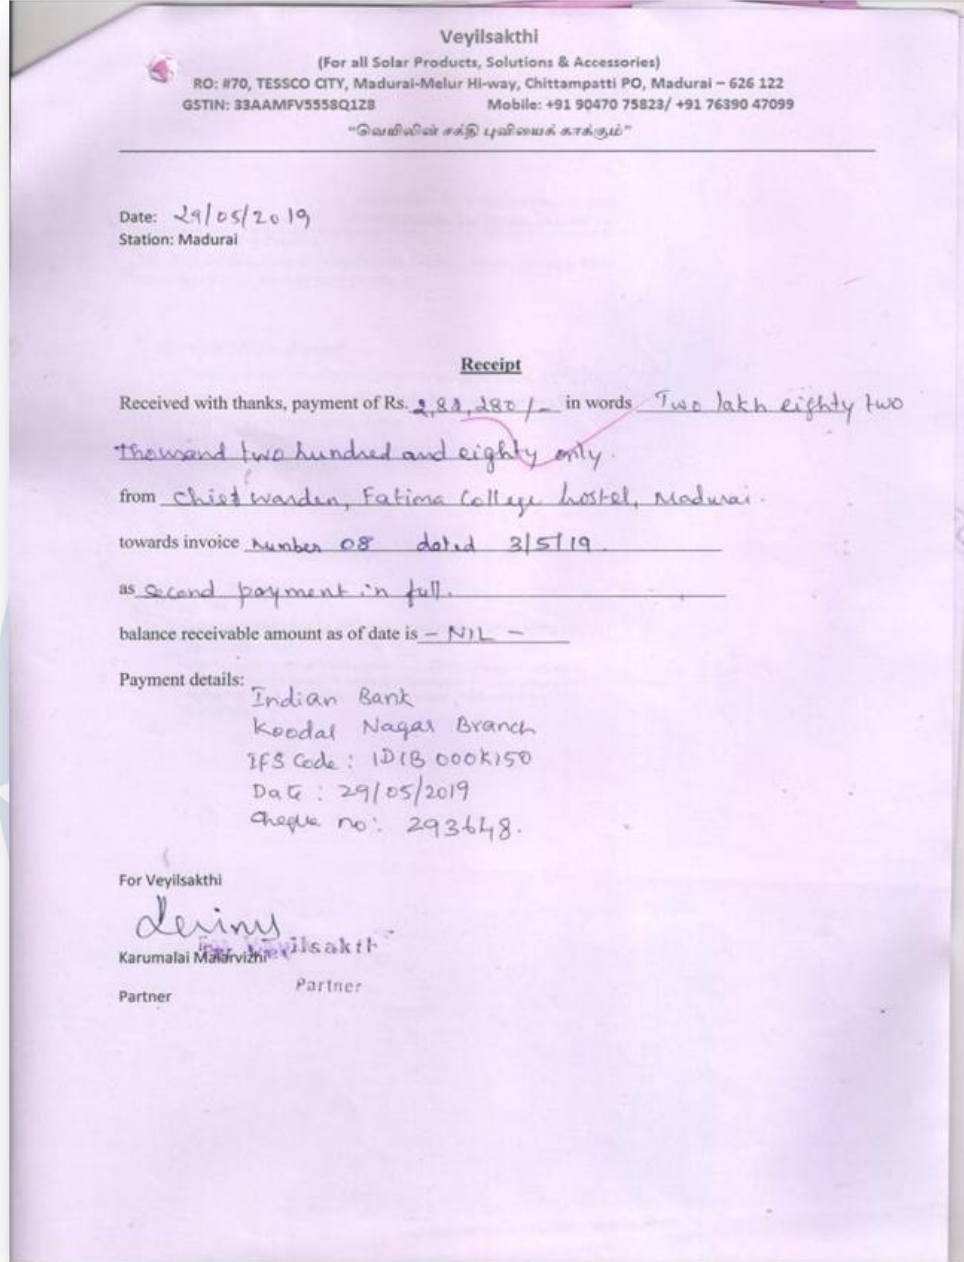 Veyilsakthi
(For all Solar Products, Solutions & Accessories)
RO: #70, TESSCO CITY, Madurai-Melur Hi-way, Chittampatti PO, Madurai – 626 122
GSTIN: 33AAMFV5558Q1Z8 Mobile: +91 90470 75823/ +91 76390 47099
"வெயிலின் சக்தி புவியைக் காக்கும்"
Date: 29/05/2019
Station: Madurai
Receipt
Received with thanks, payment of Rs. 2,82,280/- in words Two lakh eighty two
thousand two hundred and eighty only.
from Chief warden, Fatima College hostel, Madurai.
towards invoice Number 08 dated 3/5/19.
as Second payment in full.
balance receivable amount as of date is – NIL –
Payment details:
Indian Bank
Koodal Nagar Branch
IFS Code: IDIB000K150
Date: 29/05/2019
Cheque no: 293648.
For Veyilsakthi
Karumalai Malarvizhi
Partner
Partner